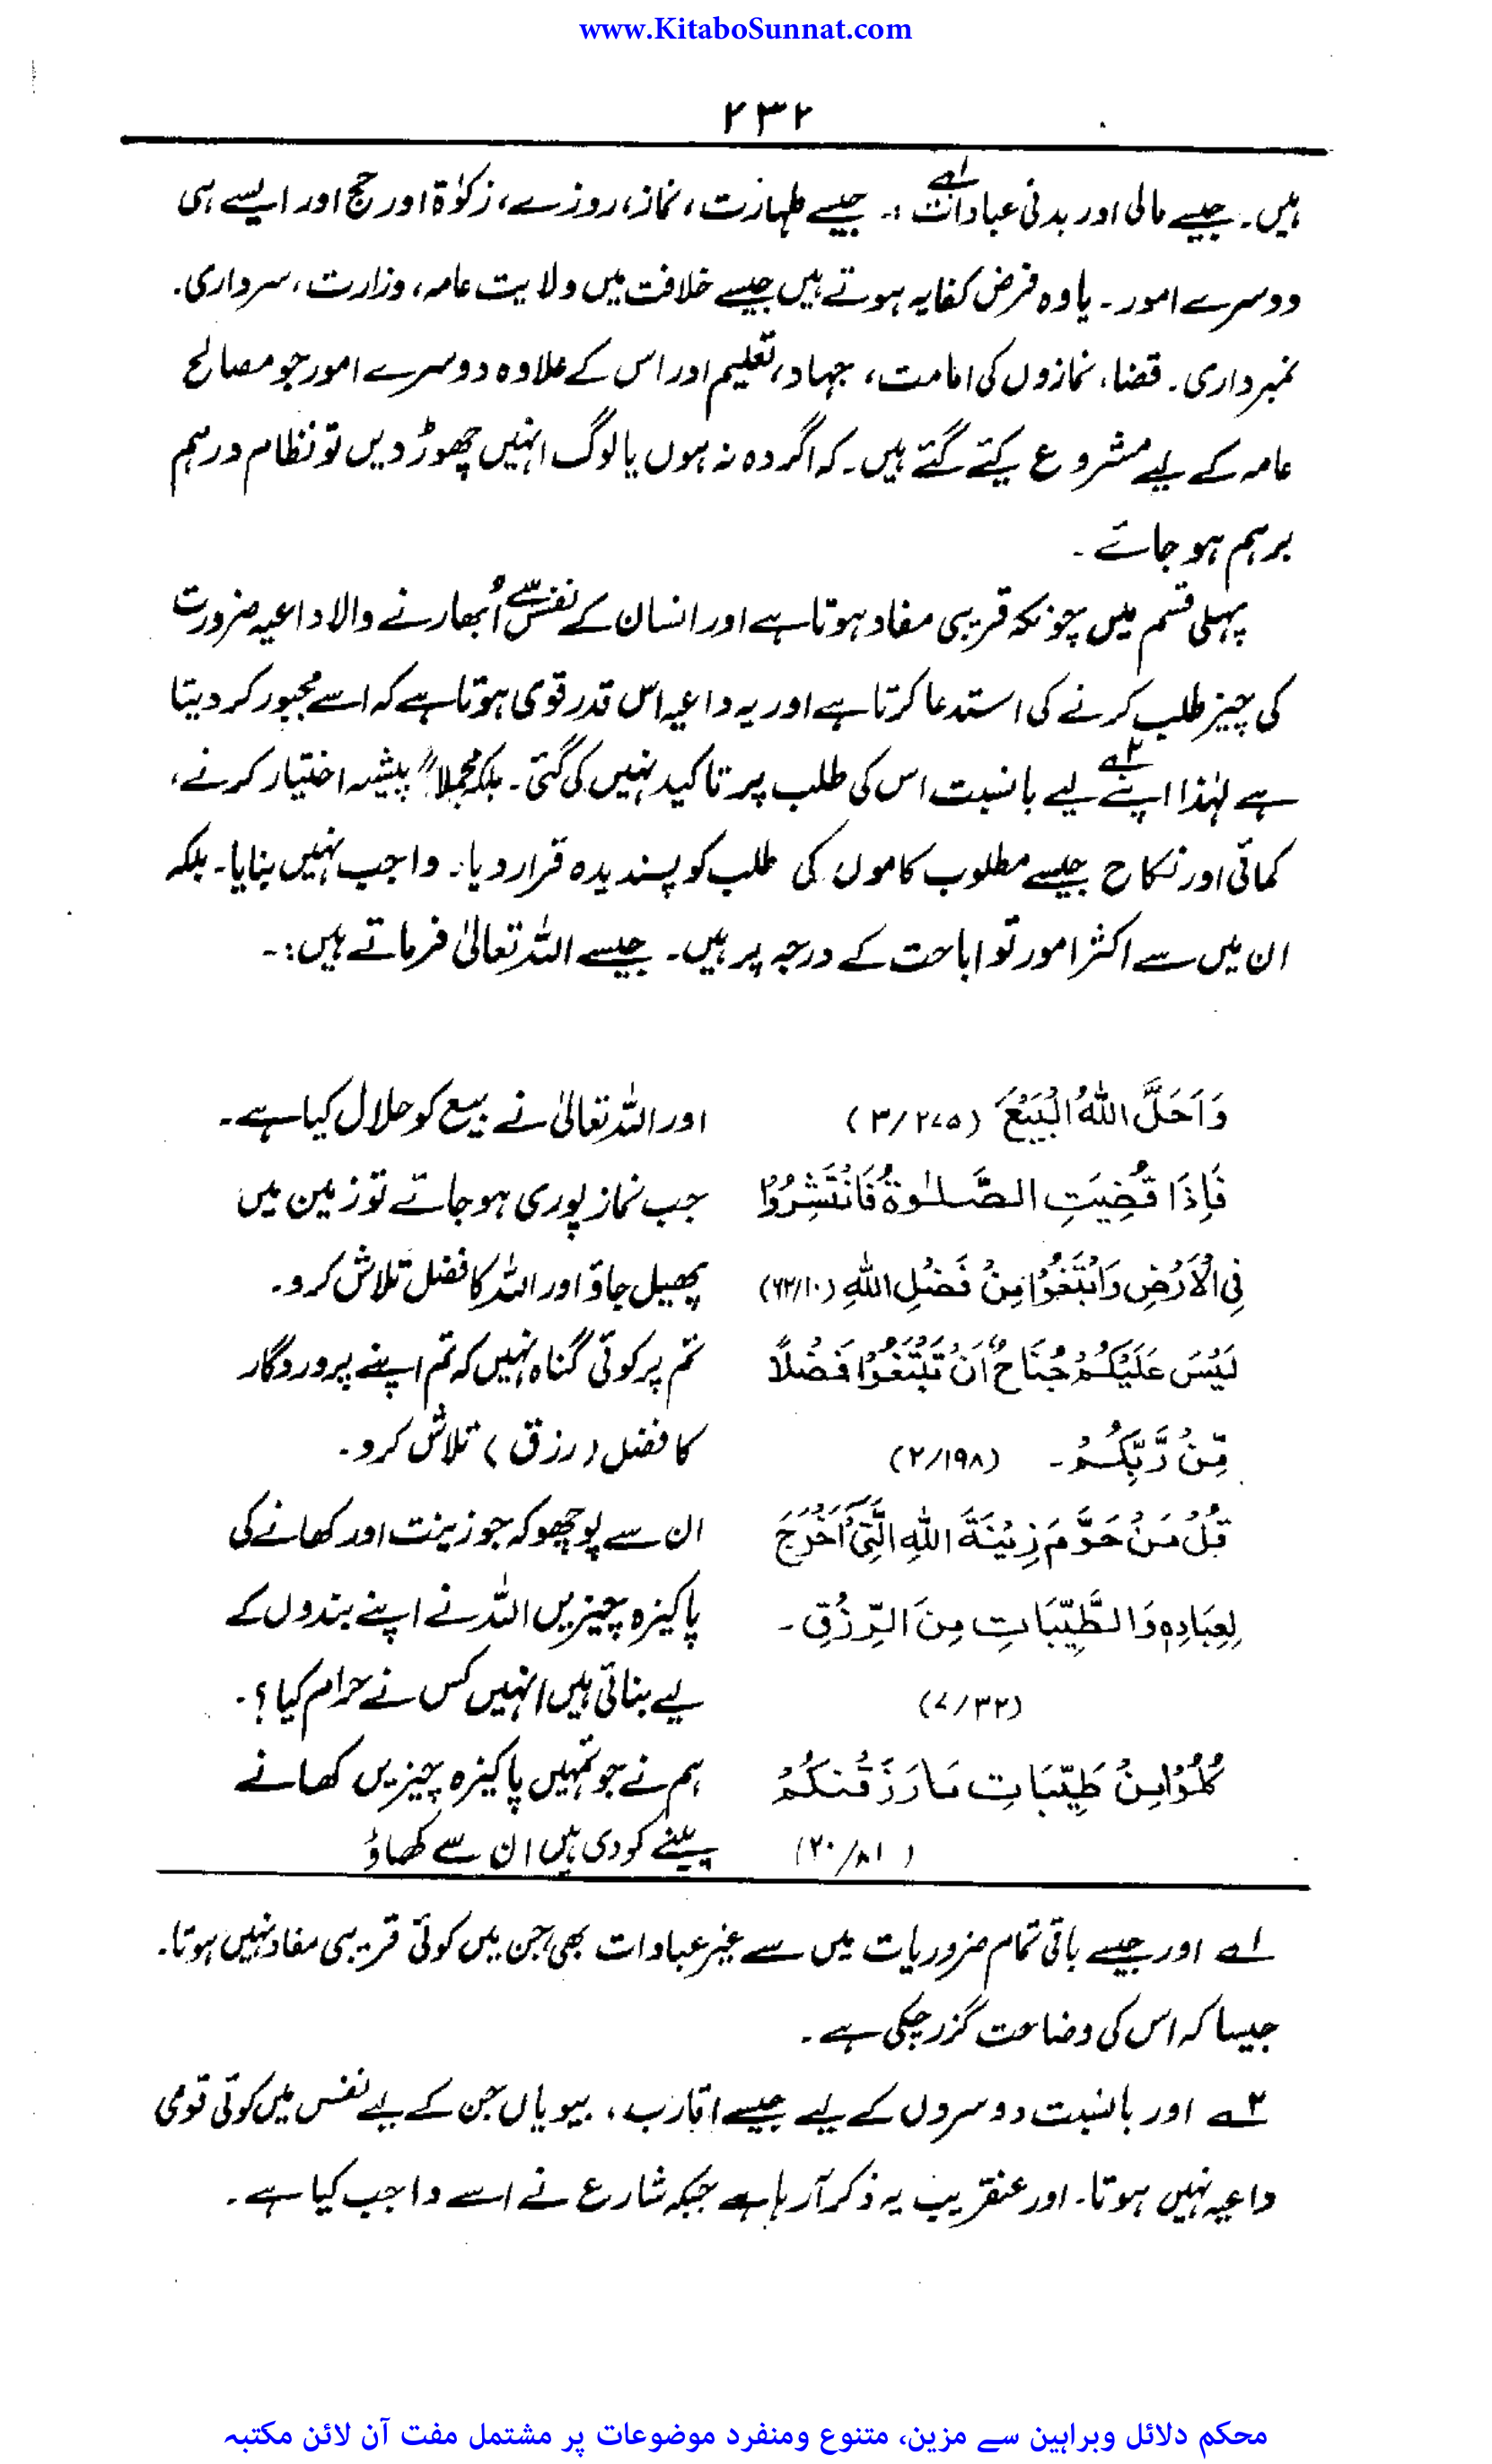 www.KitaboSunnat.com
۲۳۲
ہیں۔ جیسے مالی اور بدنی عبادات۱ے :۔ جیسے طہارت، نماز، روزے، زکوٰۃ اور حج اور ایسے ہی
دوسرے امور۔ یا وہ فرض کفایہ ہوتے ہیں جیسے خلافت میں ولایت عامہ، وزارت، سرداری۔
نمبرداری۔ قضا، نمازوں کی امامت، جہاد، تعلیم اور اس کے علاوہ دوسرے امور جو مصالح
عامہ کے لیے مشروع کیے گئے ہیں۔ کہ اگر وہ نہ ہوں یا لوگ انہیں چھوڑ دیں تو نظام درہم
برہم ہو جائے۔
پہلی قسم میں چونکہ قریبی مفاد ہوتا ہے اور انسان کے نفس سے اُبھارنے والا داعیہ ضرورت
کی چیز طلب کرنے کی استدعا کرتا ہے اور یہ داعیہ اس قدر قوی ہوتا ہے کہ اسے مجبور کر دیتا
ہے لہٰذا اپنے۲ے لیے بانسبت اس کی طلب پر تاکید نہیں کی گئی۔ بلکہ مجملاً پیشہ اختیار کرنے،
کمائی اور نکاح جیسے مطلوب کاموں کی طلب کو پسندیدہ قرار دیا۔ واجب نہیں بنایا۔ بلکہ
ان میں سے اکثر امور تو اباحت کے درجہ پر ہیں۔ جیسے اللہ تعالیٰ فرماتے ہیں:۔
وَاَحَلَّ اللّٰهُ الْبَيْعَ (۳/۲۷۵) اور اللہ تعالیٰ نے بیع کو حلال کیا ہے۔
فَاِذَا قُضِيَتِ الصَّلٰوةُ فَانْتَشِرُوْا جب نماز پوری ہو جائے تو زمین میں
فِی الْاَرْضِ وَابْتَغُوْا مِنْ فَضْلِ اللّٰهِ (۶۲/۱۰) پھیل جاؤ اور اللہ کا فضل تلاش کرو۔
لَيْسَ عَلَيْكُمْ جُنَاحٌ اَنْ تَبْتَغُوْا فَضْلًا تم پر کوئی گناہ نہیں کہ تم اپنے پروردگار
مِّنْ رَّبِّكُمْ۔ (۲/۱۹۸) کا فضل (رزق) تلاش کرو۔
قُلْ مَنْ حَرَّمَ زِيْنَةَ اللّٰهِ الَّتِیْٓ اَخْرَجَ ان سے پوچھو کہ جو زینت اور کھانے کی
لِعِبَادِهٖ وَالطَّيِّبَاتِ مِنَ الرِّزْقِ۔ پاکیزہ چیزیں اللہ نے اپنے بندوں کے
(۷/۳۲) لیے بنائی ہیں انہیں کس نے حرام کیا؟۔
كُلُوْا مِنْ طَيِّبَاتِ مَا رَزَقْنٰكُمْ ہم نے جو تمہیں پاکیزہ چیزیں کھانے
(۲۰/۸۱) پینے کو دی ہیں ان سے کھاؤ
۱ے اور جیسے باقی تمام ضروریات میں سے غیر عبادات بھی جن میں کوئی قریبی مفاد نہیں ہوتا۔
جیسا کہ اس کی وضاحت گزر چکی ہے۔
۲ے اور بانسبت دوسروں کے لیے جیسے اقارب، بیویاں جن کے لیے نفس میں کوئی قومی
داعیہ نہیں ہوتا۔ اور عنقریب یہ ذکر آ رہا ہے جبکہ شارع نے اسے واجب کیا ہے۔
محکم دلائل وبراہین سے مزین، متنوع ومنفرد موضوعات پر مشتمل مفت آن لائن مکتبہ